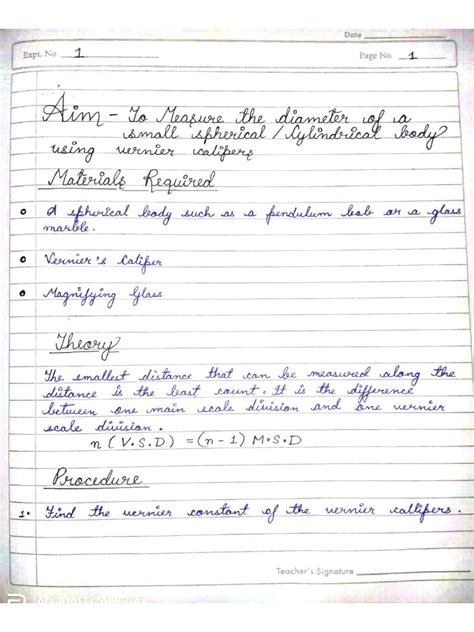 Date
Expt. No. 1
Page No. 1
Aim - To Measure the diameter of a
small spherical / Cylindrical body
using vernier calipers
Materials Required
A spherical body such as a pendulum bob or a glass
marble.
Vernier's Caliper
Magnifying Glass
Theory
The smallest distance that can be measured along the
distance is the least count. It is the difference
between one main scale division and one vernier
scale division.
n (V.S.D) = (n-1) M.S.D
Procedure
1. Find the vernier constant of the vernier callipers.
Teacher's Signature